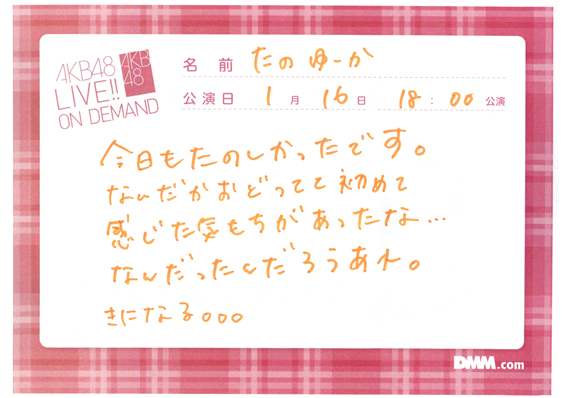 AKB48
LIVE!!
ON DEMAND
AKB
48
名 前 たの ゆーか
公演日 1 月 16 日 18 : 00 公演
今日もたのしかったです。
なんだかおどってて初めて
感じた気もちがあったな…
なんだったんだろうあれ。
きになる。。。
DMM.com